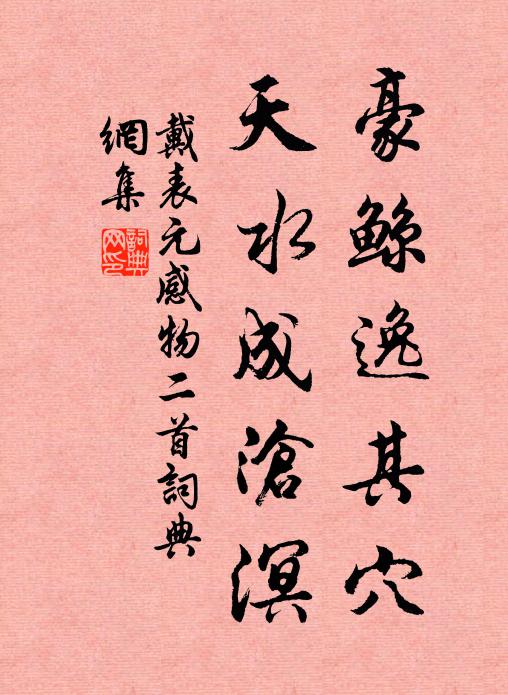 豪鲸逸其穴
天水成滄溟
戴表元感物二首詞典
網集
詞典
网印